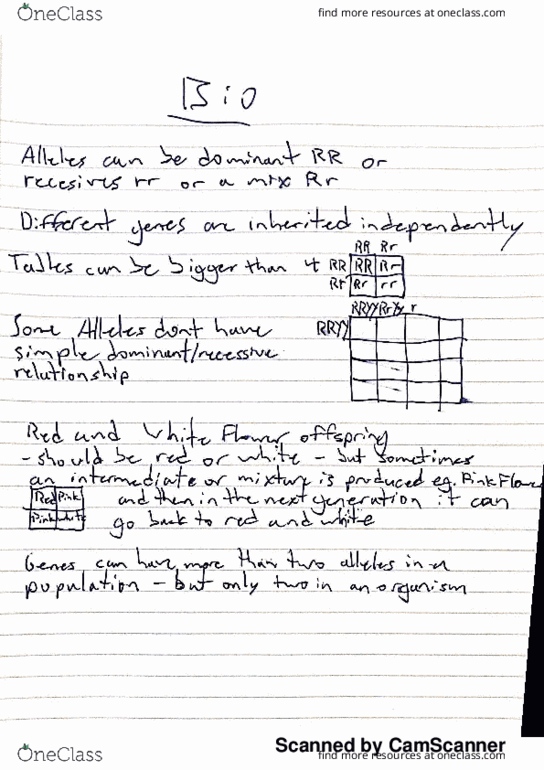 OneClass
find more resources at oneclass.com
Bio
Alleles can be dominant RR or
recesives rr or a mix Rr
Different genes are inherited independently
RR Rr
Tables can be bigger than 4 RR RR Rr
Rr Rr rr
RRYY RrYy r
Some Alleles dont have RRYY
simple dominant/recessive
relationship
Red and White Flower offspring
- should be red or white - but sometimes
an intermediate or mixture is produced eg. Pink Flower
Red Pink and then in the next generation it can
Pink White go back to red and white
Genes can have more than two alleles in a
population - but only two in an organism
Scanned by CamScanner
OneClass
find more resources at oneclass.com